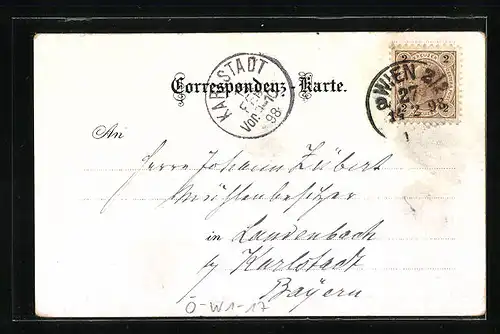 2 2
WIEN
27
2 98
KARLSTADT
Vor.
98
Correspondenz-Karte.
An
Herrn Johann Zubert
Mühlenbesitzer
in Laudenbach
by Karlstadt
Bayern
Ö-W1-17